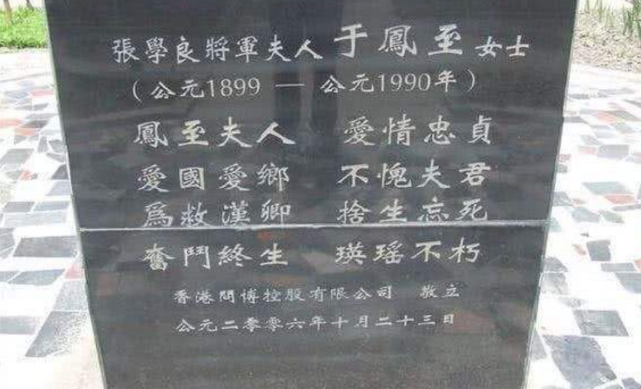 張學良將軍夫人于鳳至女士
（公元1899 — 公元1990年）
鳳至夫人 愛情忠貞
愛國愛鄉 不愧夫君
為救漢卿 捨生忘死
奮鬥終生 瑛瑤不朽
香港問博控股有限公司 敬立
公元二零零六年十月二十三日